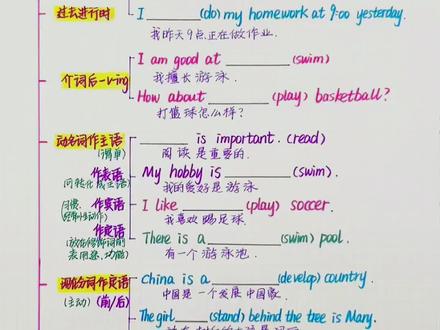 过去进行时 I ______ (do) my homework at 9:00 yesterday.
我昨天9点正在做作业.
I am good at ______ (swim)
介词后-ving 我擅长游泳.
How about ______ (play) basketball?
打篮球怎么样?
动名词作主语 ______ is important. (read)
阅读是重要的.
作表语 My hobby is ______ (swim).
我的爱好是游泳
作宾语 I like ______ (play) soccer.
我喜欢踢足球.
作定语 There is a ______ (swim) pool.
有一个游泳池.
现在分词作定语 China is a ______ (develop) country.
(主动) (前/后) 中国是一个发展中国家.
The girl ______ (stand) behind the tree is Mary.